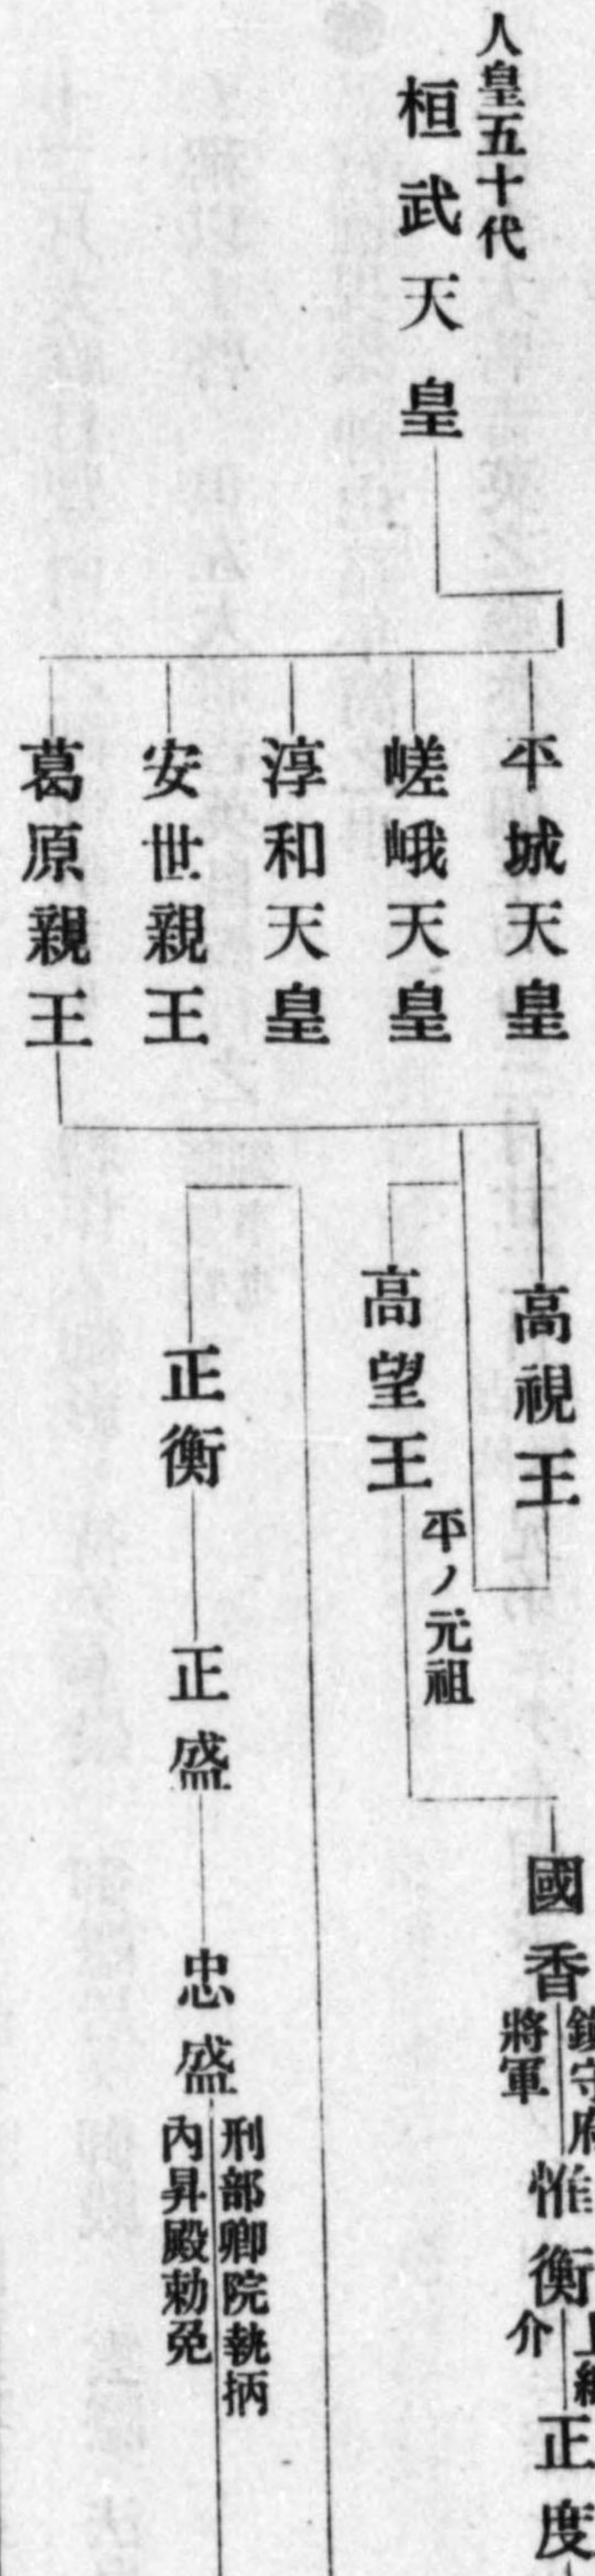 人皇五十代
桓武天皇
平城天皇
嵯峨天皇
淳和天皇
安世親王
葛原親王
高視王
高望王
平ノ元祖
國香
鎮守府
將軍
惟衡
上總
介
正度
正衡
正盛
忠盛
刑部卿院執柄
內昇殿勅免